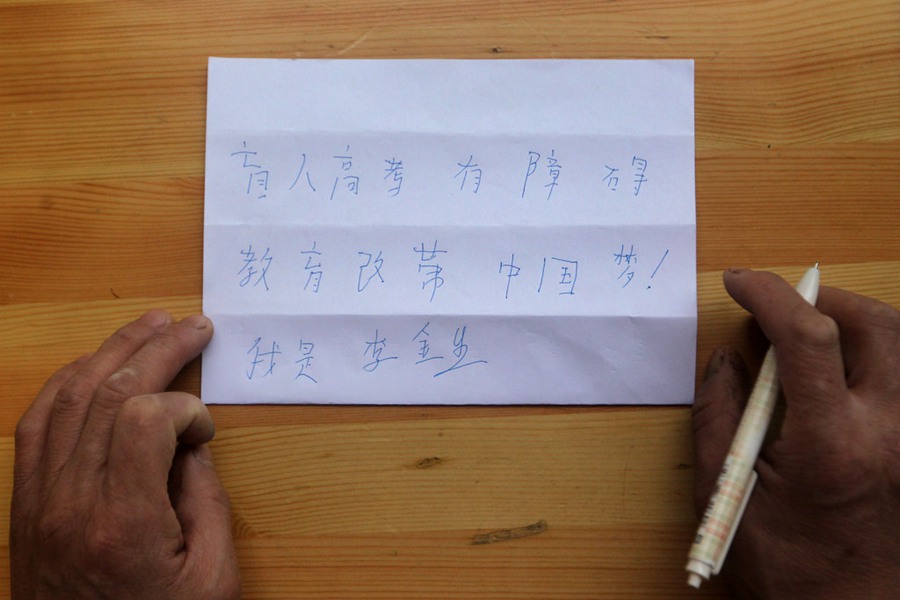 盲人高考有障碍
教育改革中国梦!
我是李金生